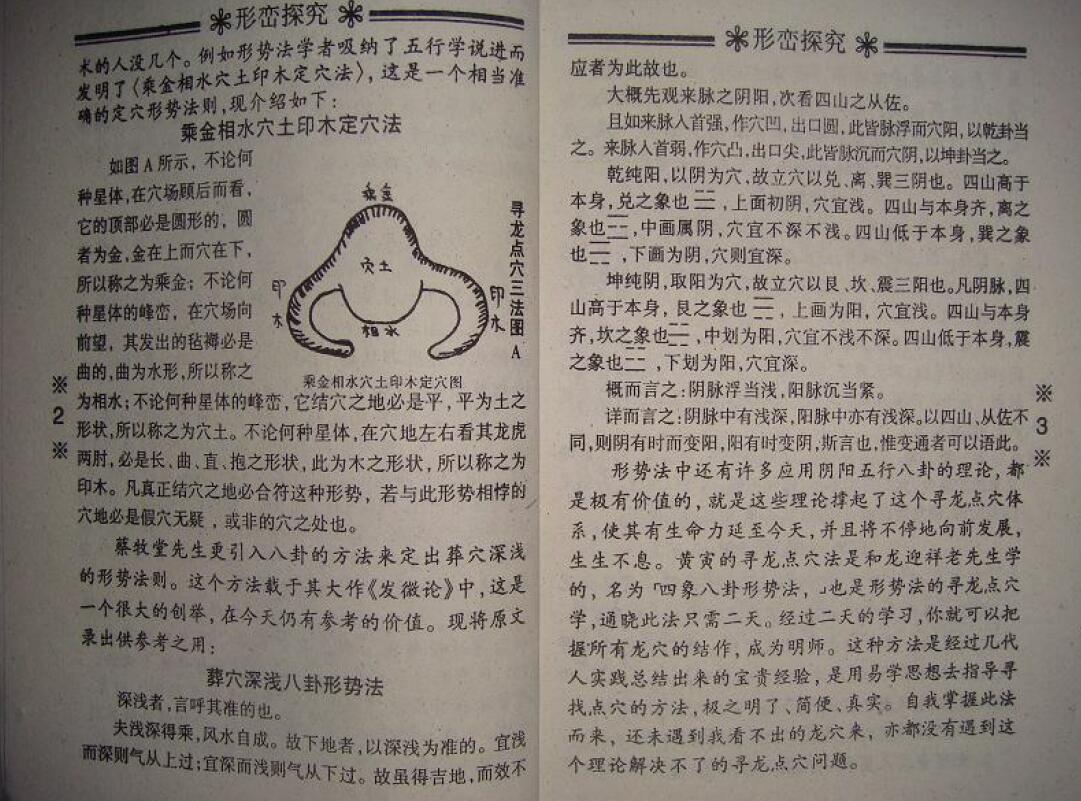 形峦探究
术的人没几个。例如形势法学者吸纳了五行学说进而
发明了〈乘金相水穴土印木定穴法〉，这是一个相当准
确的定穴形势法则，现介绍如下：
乘金相水穴土印木定穴法
如图A所示，不论何
种星体，在穴场顾后而看，
它的顶部必是圆形的，圆
者为金，金在上而穴在下，
所以称之为乘金；不论何
种星体的峰峦，在穴场向
前望，其发出的毡褥必是
曲的，曲为水形，所以称之
乘金
穴土
印木
印木
相水
乘金相水穴土印木定穴图
寻龙点穴三法图A
为相水；不论何种星体的峰峦，它结穴之地必是平，平为土之
形状，所以称之为穴土。不论何种星体，在穴地左右看其龙虎
两肘，必是长、曲、直、抱之形状，此为木之形状，所以称之为
印木。凡真正结穴之地必合符这种形势，若与此形势相悖的
穴地必是假穴无疑，或非的穴之处也。
蔡牧堂先生更引入八卦的方法来定出葬穴深浅
的形势法则。这个方法载于其大作《发微论》中，这是
一个很大的创举，在今天仍有参考的价值。现将原文
录出供参考之用：
葬穴深浅八卦形势法
深浅者，言呼其准的也。
夫浅深得乘，风水自成。故下地者，以深浅为准的。宜浅
而深则气从上过；宜深而浅则气从下过。故虽得吉地，而效不
※2※
形峦探究
应者为此故也。
大概先观来脉之阴阳，次看四山之从佐。
且如来脉入首强，作穴凹，出口圆，此皆脉浮而穴阳，以乾卦当
之。来脉入首弱，作穴凸，出口尖，此皆脉沉而穴阴，以坤卦当之。
乾纯阳，以阴为穴，故立穴以兑、离、巽三阴也。四山高于
本身，兑之象也☱，上面初阴，穴宜浅。四山与本身齐，离之
象也☲，中画属阴，穴宜不深不浅。四山低于本身，巽之象
也☴，下画为阴，穴则宜深。
坤纯阴，取阳为穴，故立穴以艮、坎、震三阳也。凡阴脉，四
山高于本身，艮之象也☶，上画为阳，穴宜浅。四山与本身
齐，坎之象也☵，中划为阳，穴宜不浅不深。四山低于本身，震
之象也☳，下划为阳，穴宜深。
概而言之：阴脉浮当浅，阳脉沉当紧。
详而言之：阴脉中有浅深，阳脉中亦有浅深。以四山、从佐不
同，则阴有时而变阳，阳有时变阴，斯言也，惟变通者可以语此。
形势法中还有许多应用阴阳五行八卦的理论，都
是极有价值的，就是这些理论撑起了这个寻龙点穴体
系，使其有生命力延至今天，并且将不停地向前发展，
生生不息。黄寅的寻龙点穴法是和龙迎祥老先生学
的，名为「四象八卦形势法，」也是形势法的寻龙点穴
学，通晓此法只需二天。经过二天的学习，你就可以把
握所有龙穴的结作，成为明师。这种方法是经过几代
人实践总结出来的宝贵经验，是用易学思想去指导寻
找点穴的方法，极之明了、简便、真实。自我掌握此法
而来，还未遇到我看不出的龙穴来，亦都没有遇到这
个理论解决不了的寻龙点穴问题。
※3※